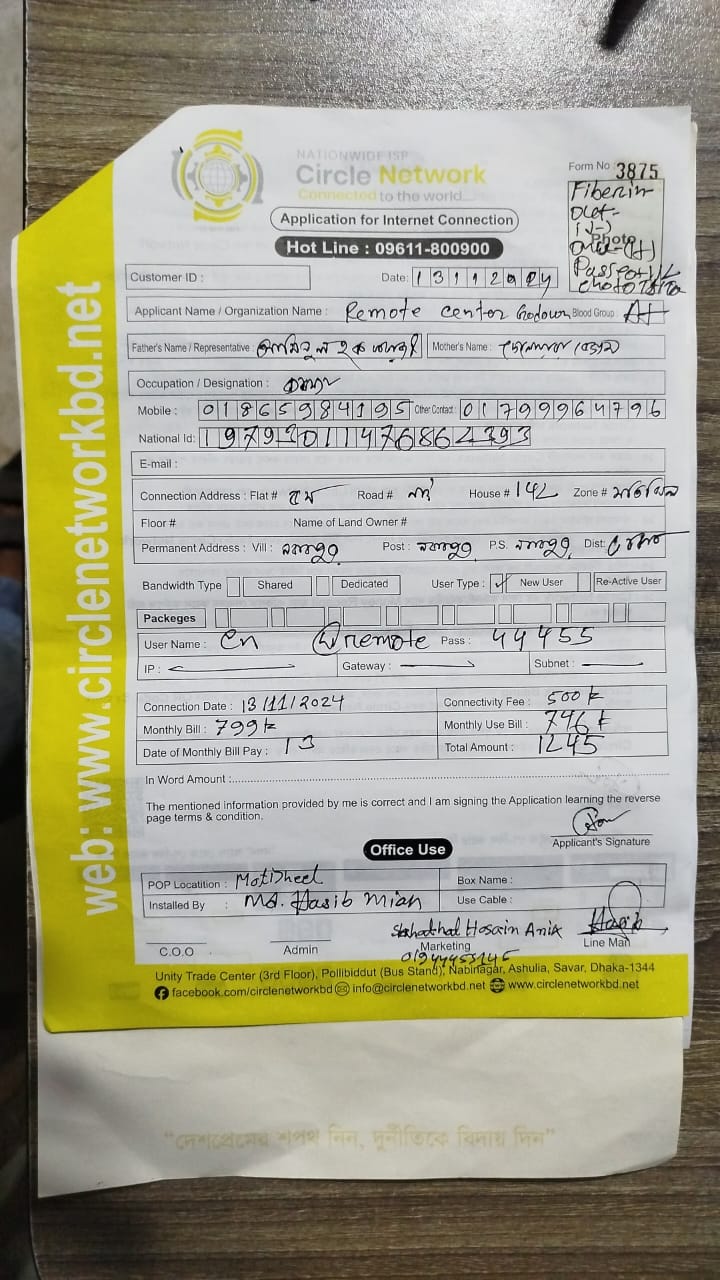 NATIONWIDE ISP
Circle Network
Connected to the world...
Application for Internet Connection
Hot Line : 09611-800900
Form No : 3875
Fiber in
Photo
Customer ID :
Date: 13112024
Applicant Name / Organization Name : Remote Center Godown Blood Group : A+
Father's Name / Representative :
Mother's Name :
Occupation / Designation :
Mobile : 01865984195 Other Contact: 01799964796
National Id:
E-mail :
Connection Address : Flat # Road # House # 142 Zone # মতিঝিল
Floor # Name of Land Owner #
Permanent Address : Vill : Post : P.S. Dist: ঢাকা
Bandwidth Type Shared Dedicated User Type : ✓ New User Re-Active User
Packeges
User Name : cn @remote Pass : 44455
IP : Gateway : Subnet :
Connection Date : 13/11/2024 Connectivity Fee : 500 k
Monthly Bill : 799 k Monthly Use Bill :
Date of Monthly Bill Pay : 13 Total Amount : 1245
In Word Amount :
The mentioned information provided by me is correct and I am signing the Application learning the reverse
page terms & condition.
Applicant's Signature
Office Use
POP Locatition : Motijheel Box Name :
Installed By : Md. Hasib Mian Use Cable :
Hosain Anik Hasib
C.O.O Admin Marketing Line Man
Unity Trade Center (3rd Floor), Pollibiddut (Bus Stand), Nabinagar, Ashulia, Savar, Dhaka-1344
facebook.com/circlenetworkbd info@circlenetworkbd.net www.circlenetworkbd.net
web: www.circlenetworkbd.net
“দেশপ্রেমের শপথ নিন, দুর্নীতিকে বিদায় দিন”